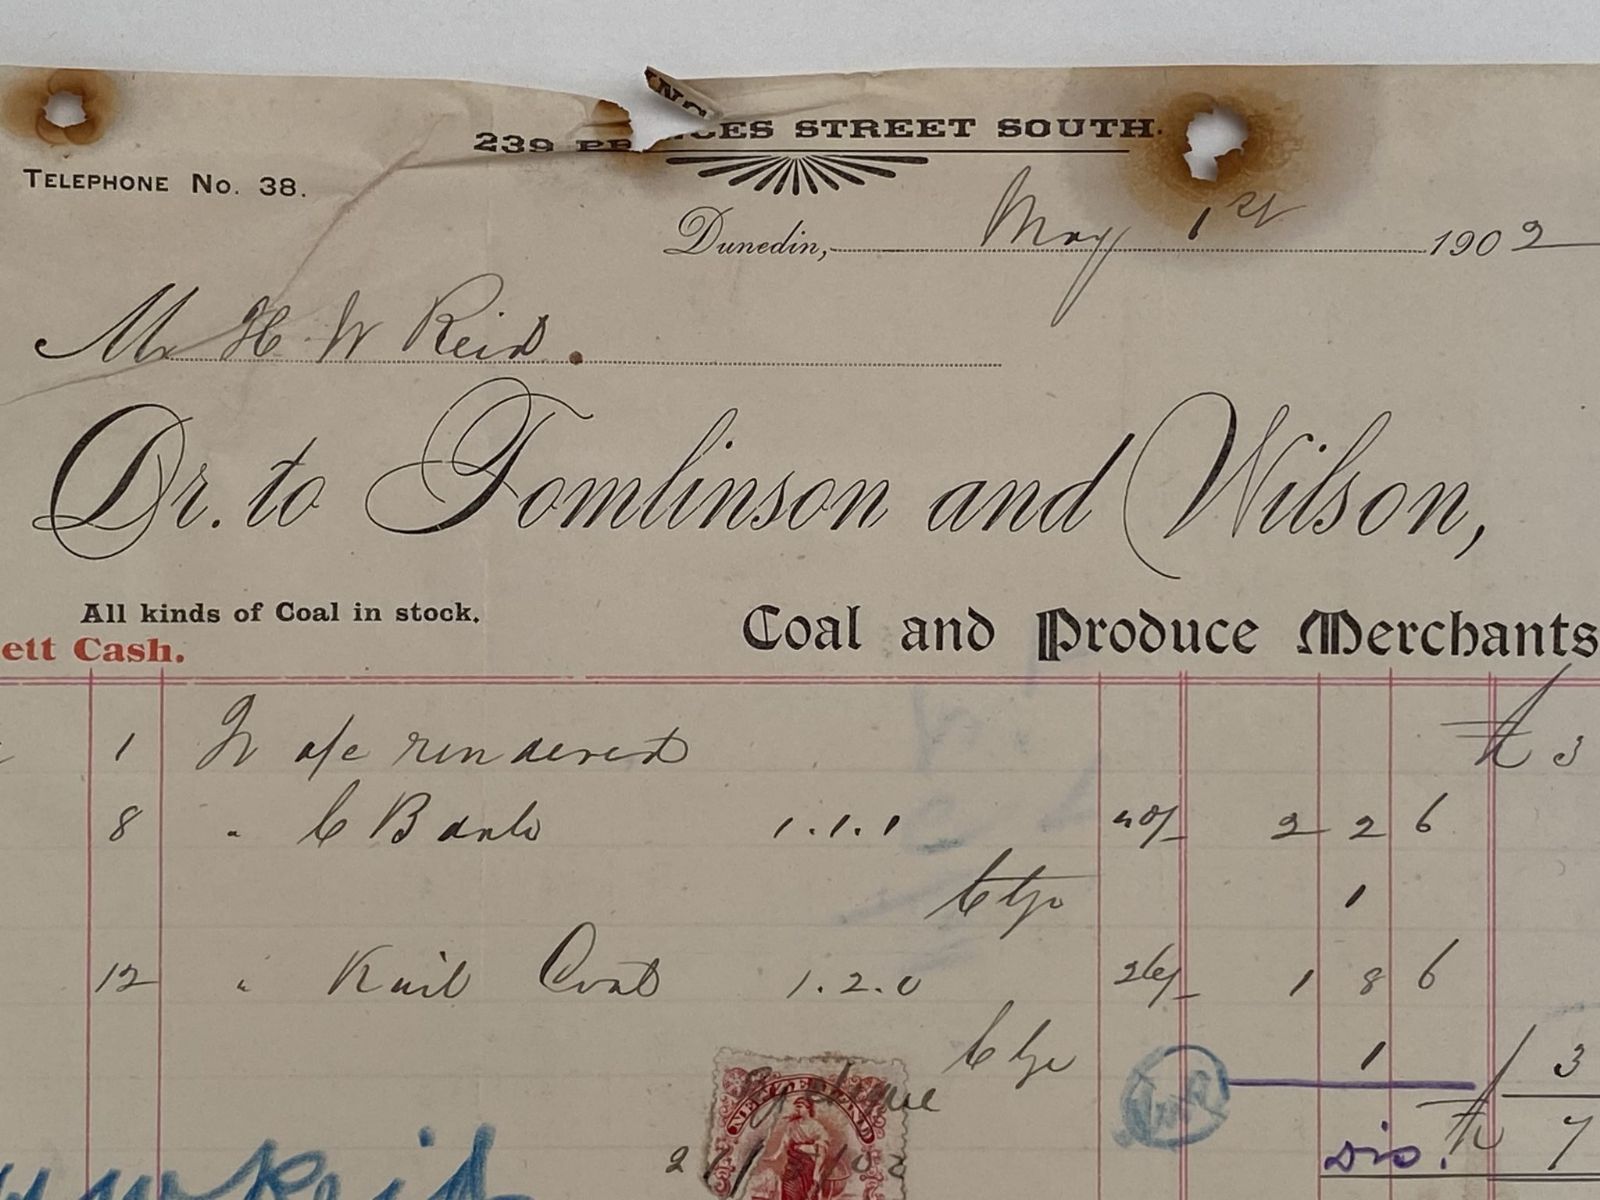 239 PRINCES STREET SOUTH.
TELEPHONE No. 38.
Dunedin, May 1st 1902
Mr H W Reid.
Dr. to Tomlinson and Wilson,
All kinds of Coal in stock.
Coal and Produce Merchants
ett Cash.
1 To a/c rendered £ 3
8 " 1.1.1 40/- 2 2 6
Ctge 1
12 " Kait Coal 1.2.0 26/- 1 8 6
Ctge 1 3
NEW ZEALAND
£ 7
Dis.
Reid